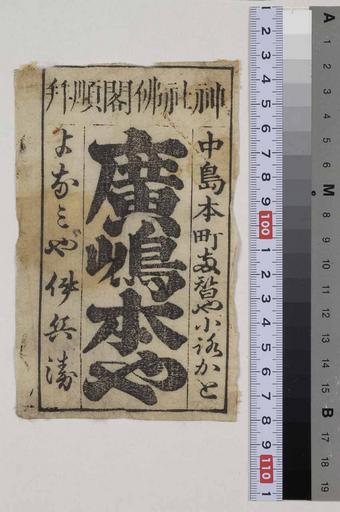 神社佛閣順拝
中島本町両替や小路かと
廣嶋本や
よなミや 伊兵衛
1 2 3 4 5 6 7 8 9 100 1 2 3 4 5 6 7 8 9 110 1
A 1 2 3 4 5 6 M 8 9 10 11 12 13 14 15 B 17 18 19